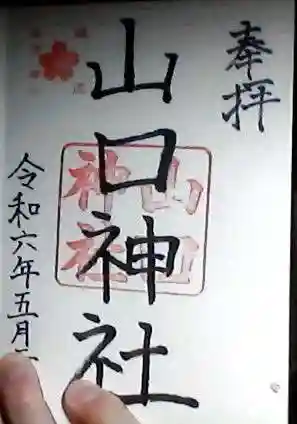 奉拝
山口神社
山口神社
令和六年五月